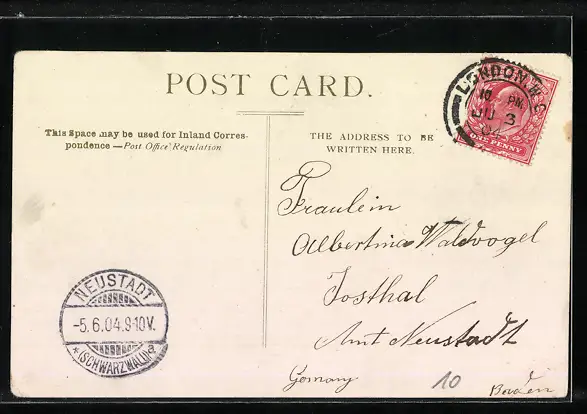 POST CARD.
This Space may be used for Inland Corres-
pondence — Post Office Regulation
THE ADDRESS TO BE
WRITTEN HERE.
LONDON.W.
10 PM
JU 3
04
ONE PENNY
Fräulein
Albertina Waldvogel
Josthal
Amt Neustadt
Germany
10
Baden
NEUSTADT
-5.6.04.9-10V.
* (SCHWARZWALD) a